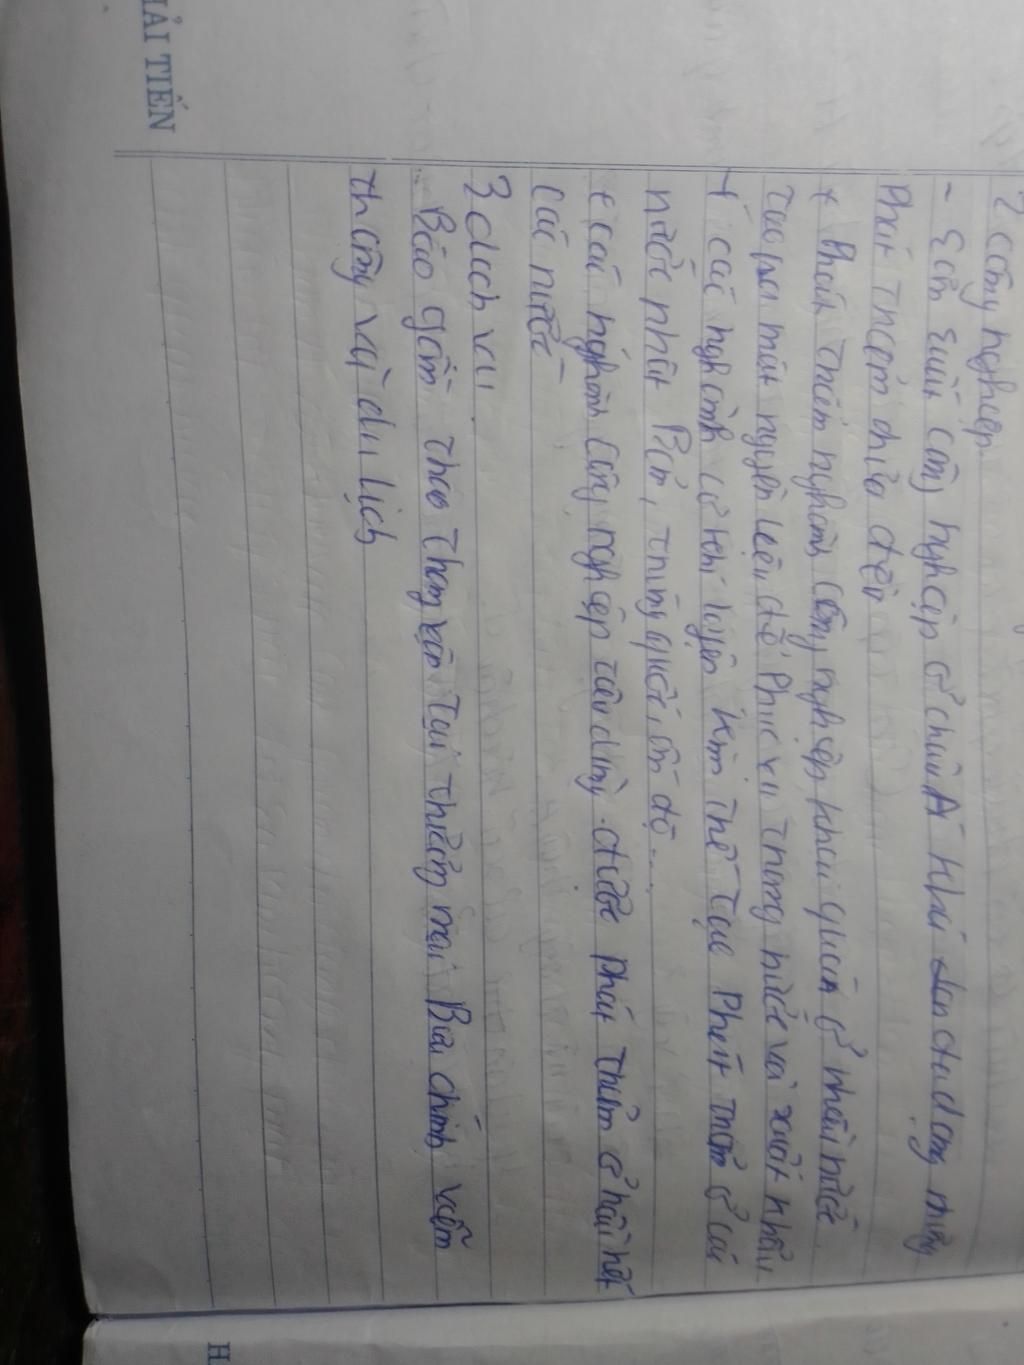 2 công nghiệp
- sản xuất công nghiệp ở châu Á khá đa dạng nhưng
Phát triển chưa đều
+ Phát triển nghành công nghiệp khai quán ở nhiều nước
tạo ra một nguyên liệu để Phục vụ trong nước và xuất khẩu
+ các nghành cơ khí luyện kim thế tạo Phát triển ở các
nước nhật Bản, trung quốc, ấn độ...
+ các nghành công nghiệp tiêu dùng được phát triển ở hầu hết
các nước
3 dịch vụ
Bao gồm theo thong vận tải thương mại Bưu chính viễn
thông và du lịch
HẢI TIẾN
H